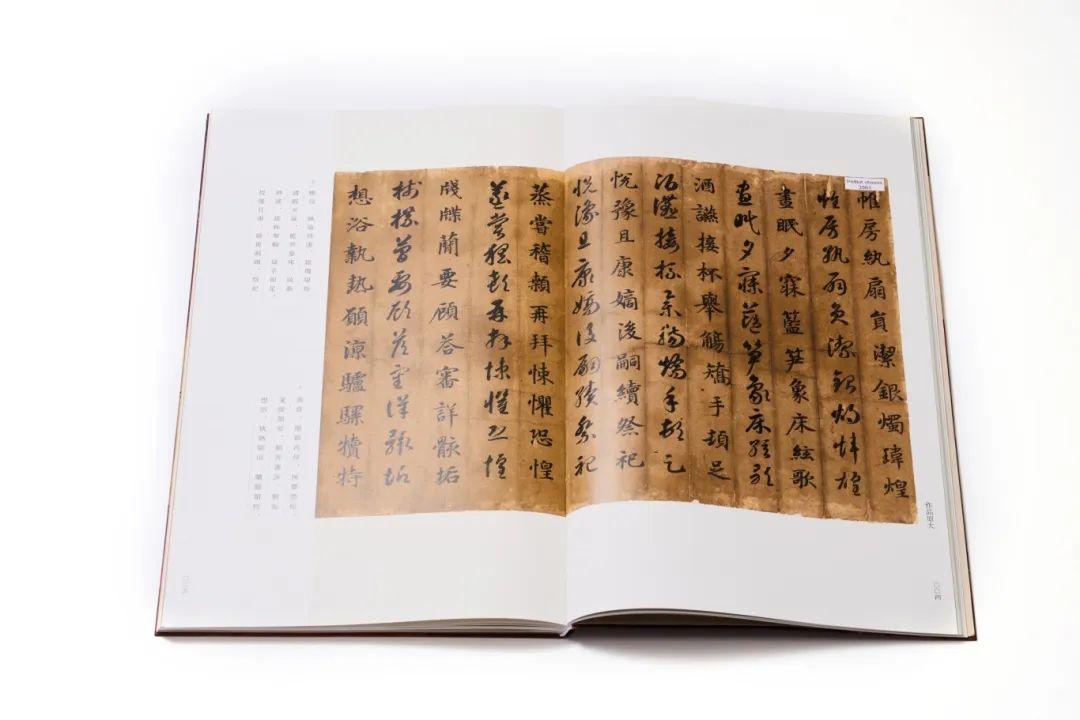 Pelliot chinois
帷房紈扇員潔銀燭瑋煌
帷房紈扇員潔銀燭煒煌
晝眠夕寐藍笋象床絃歌
晝眠夕寐藍笋象床絃歌
酒讌接杯舉觴矯手頓足
酒讌接杯舉觴矯手頓足
悅豫且康嫡後嗣續祭祀
悅豫且康嫡後嗣續祭祀
蒸嘗稽顙再拜悚懼恐惶
蒸嘗稽顙再拜悚懼恐惶
牋牒蕳要顧答審詳骸垢
牋牒蕳要顧答審詳骸垢
想浴執熱願涼驢騾犢特
作品原大
〇〇四